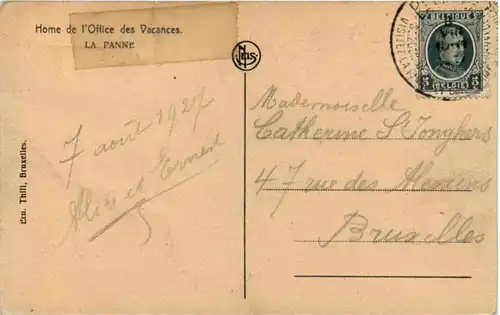 Home de l'Office des Vacances.
LA PANNE
7 août 1927
Alice et Ernest
Etn. Thill, Bruxelles.
NELS
BELGIQUE
5 5
BELGIË
VISITEZ
Mademoiselle
Catherine S'Jonghers
47 rue des
Bruxelles